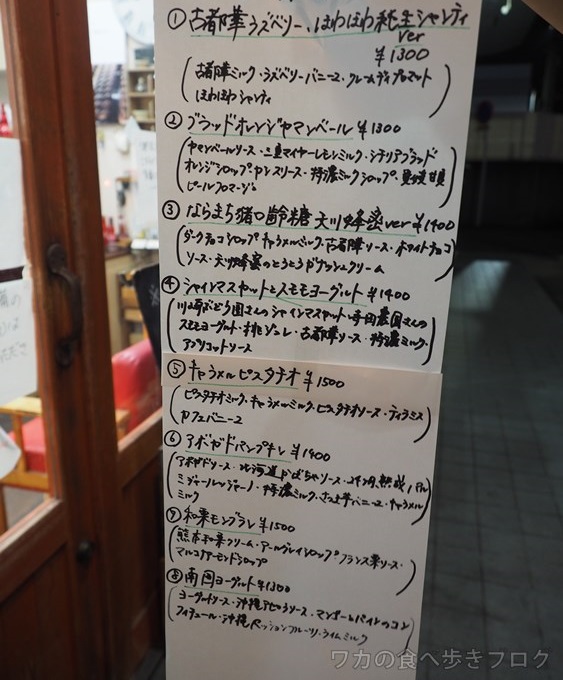 ① 古都華ラズベリー、ほわほわ純生シャンティ
ver
¥1300
(古都華ミルク・ラズベリーバニーユ・クレームディプロマット
ほわほわシャンティ)
② ブラッドオレンジヤマンベール ¥1300
(ヤマンベールソース・三重マイヤーレモンミルク・シチリアブラッド
オレンジシロップ・ヤンスリース・特濃ミルクシロップ、
ピールフロマージュ)
③ ならまち猪口齢糖 天川蜂蜜ver ¥1400
(ダークチョコシロップ キャラメルミルク・古都華ソース・ホワイトチョコ
ソース・天川蜂蜜のとろとろガナッシュクリーム)
④ シャインマスカットとスモモヨーグルト ¥1400
(川崎ぶどう園さんのシャインマスカット・寺田農園さんの
スモモヨーグルト・桃ジュレ・古都華ソース・特濃ミルク・
アプリコットソース)
⑤ キャラメルピスタチオ ¥1500
(ピスタチオミルク・キャラメルミルク・ピスタチオソース・ティラミス
カフェバニーユ)
⑥ アボガドパンプキン ¥1400
(アボガドソース・北海道かぼちゃソース・24ヶ月熟成パル
ミジャーノレッジャーノ・特濃ミルク・さつま芋バニーユ・キャラメル
ミルク)
⑦ 和栗モンブラン ¥1500
(熊本和栗クリーム・アールグレイシロップ フランス栗ソース・
マルコナアーモンドシロップ)
⑧ 南国ヨーグルト ¥1300
(ヨーグルトソース・沖縄アセロラソース・マンゴーとパインのコン
フィチュール・沖縄パッションフルーツ・ライムミルク)
ワカの食べ歩きブログ